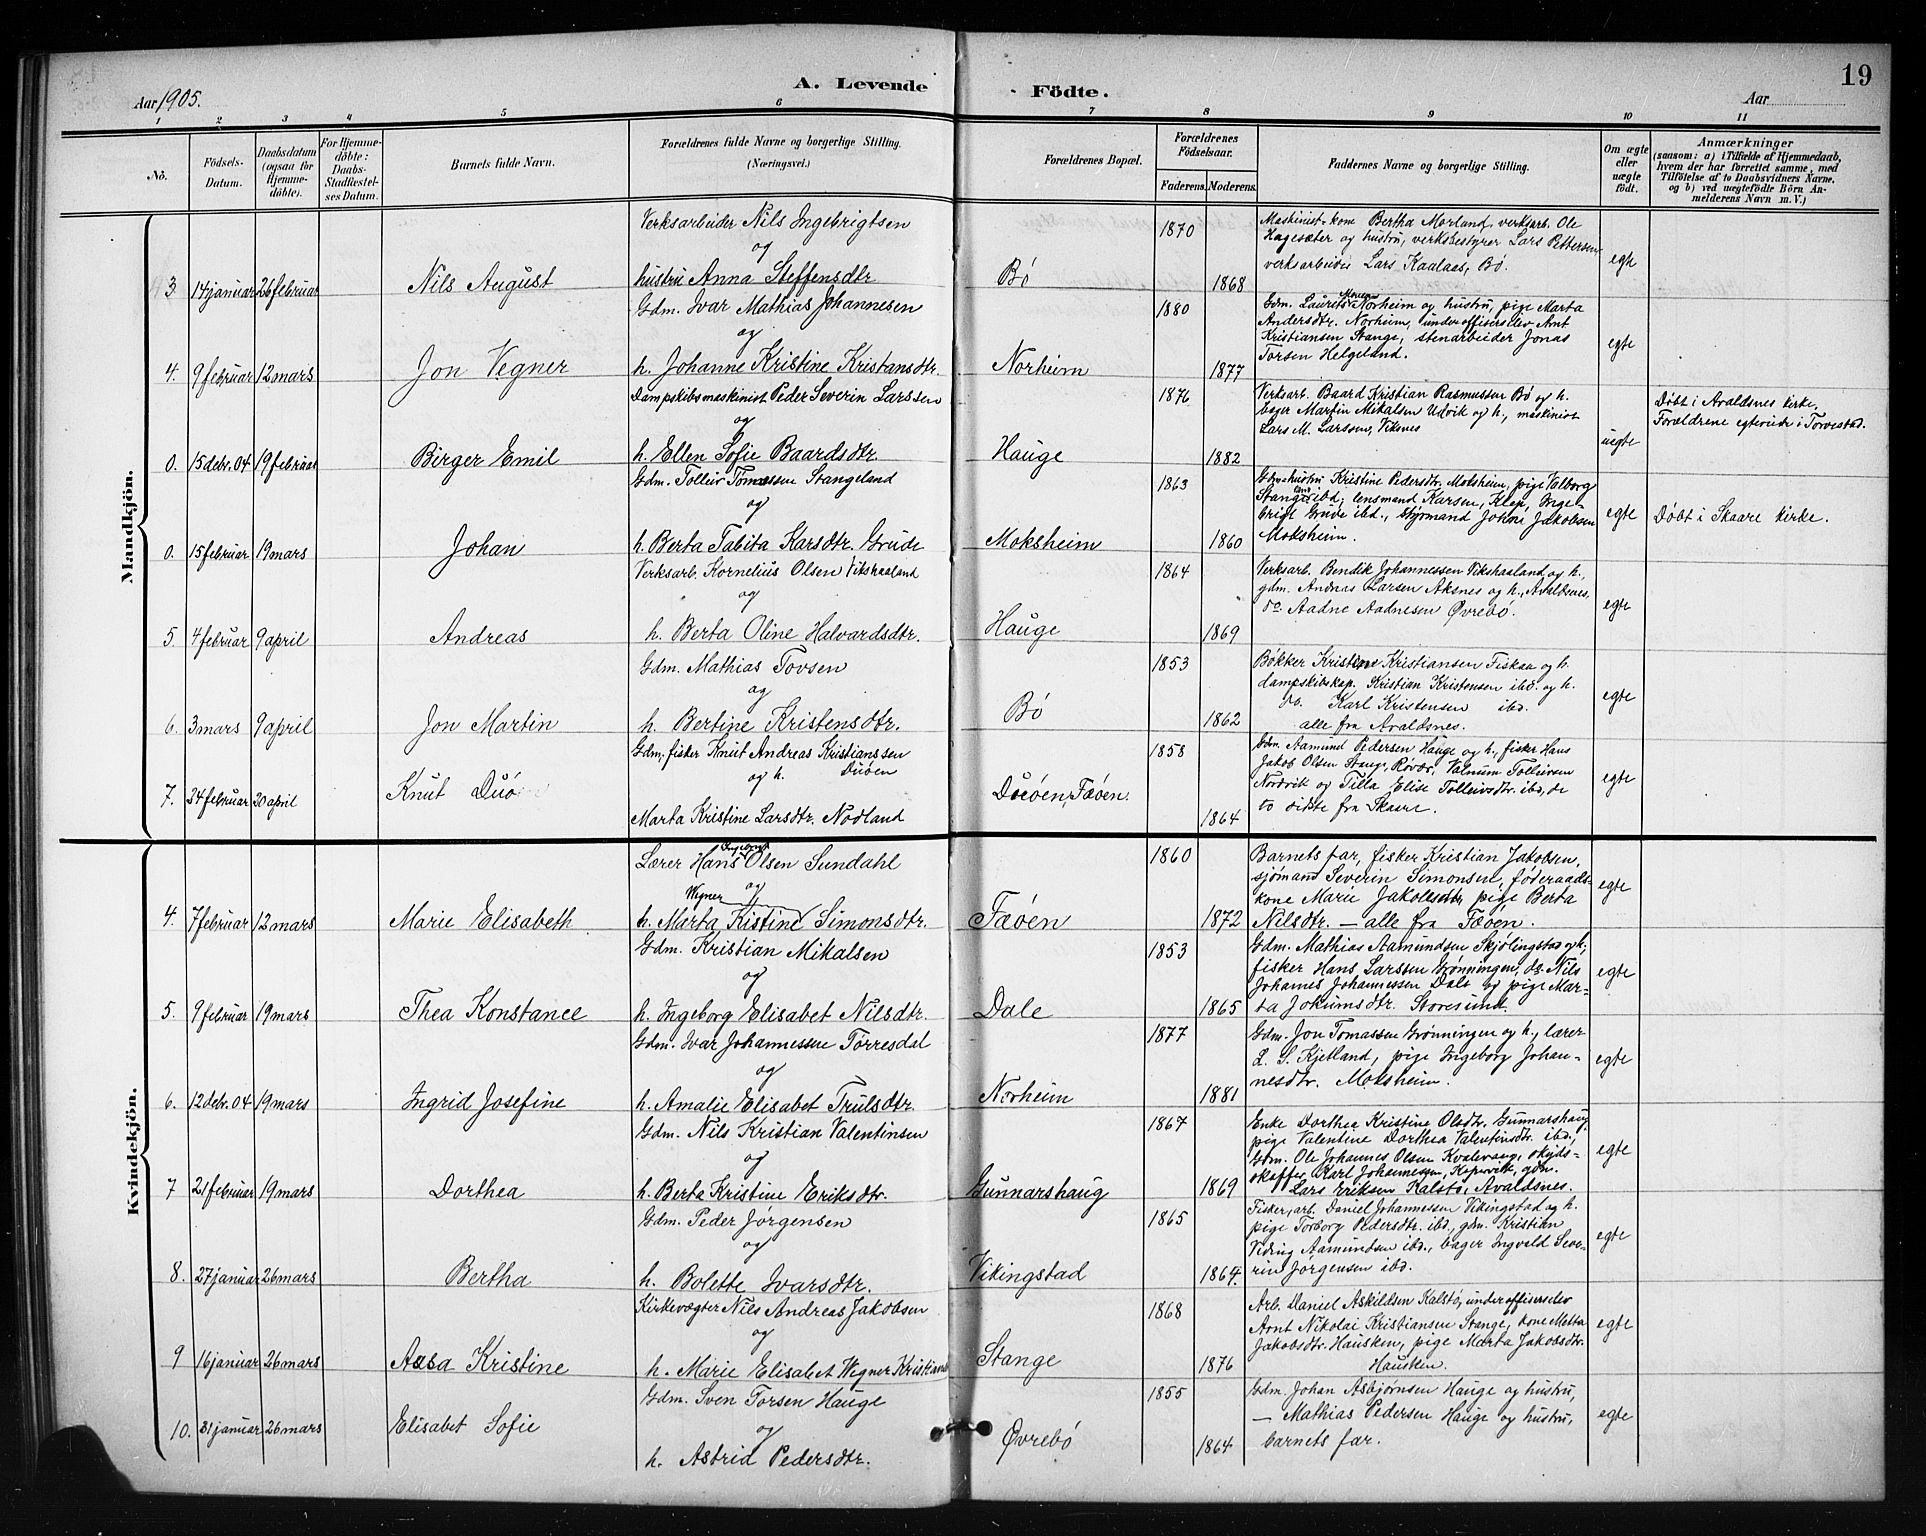 19
Aar 1905.
A. Levende Födte.
Aar
1 2 3 4 5 6 7 8 9 10 11
No.
Födsels-Datum.
Daabsdatum (ogsaa for Hjemmedöbte).
For Hjemmedöbte: Daabs-Stadfestelses Datum.
Barnets fulde Navn.
Forældrenes fulde Navne og borgerlige Stilling. (Næringsvei.)
Forældrenes Bopæl.
Forældrenes Födselsaar.
Faderens. Moderens.
Faddernes Navne og borgerlige Stilling.
Om ægte eller uægte födt.
Anmærkninger
(saasom: a) i Tilfælde af Hjemmedaab, hvem der har forrettet samme, med Tilföielse af to Daabsvidners Navne, og b) ved uægtefödte Börn Anmelderens Navn m. V.)
Mandkjön.
3. 14 januar 26 februar
Nils August
Verksarbeider Nils Ingebrigtsen
og
hustru Anna Steffensdtr
Bó
1870
1868
Maskinist, kone Bertha Morland, verksarb. Ole
Hagesæter og hustru, verksbestyrer Lars Pettersen,
verksarbeider Lars Kaalaas, Bó.
egte
4. 9 februar 12 mars
Jon Vegner
Gdm. Ivar Mathias Johannesen
og
h. Johanne Kristine Kristansdtr.
Norheim
1880
1877
Gdm. Laurits Norheim og hustru, pige Marta
Andersdtr. Norheim, underofficerselev Arnt
Kristiansen Stange, stenarbeider Jonas
Torsen Helgeland.
egte
0. 15 debr. 04 19 februar
Birger Emil
Dampskibsmaskinist Peder Severin Larssen
og
h. Ellen Sofie Baardsdtr.
Hauge
1876
1882
Verksarb. Baard Kristian Rasmussen Bó og h.
bager Martin Mikalsen Udvik og h., maskinist
Lars M. Larssen, Viknes
uegte
Dóbt i Avaldsnes kirke.
Forældrene egteviede i Torvestad.
0. 15 februar 19 mars
Johan
Gdm. Tolleiv Tomassen Stangeland
og
h. Berta Tabita Larsdtr. Grude
Moksheim
1863
1860
Gdm-hustru Kristine Pedersdtr. Moksheim, pige Valborg
Stangeland ibd., lensmand Karsen, Klep, Inge-
brigt Grude ibd., styrmand Johni Jakobsen
Moksheim.
egte
Dóbt i Skaare kirke.
5. 4 februar 9 april
Andreas
Verksarb. Kornelius Olsen Vikshaaland
og
h. Berta Oline Halvardsdtr.
Hauge
1864
1869
Verksarb. Bendik Johannessen Vikshaaland og h.,
gdm. Andreas Larsen Aksnes og h., Avaldsnes,
do. Aadne Aadnesen Øvrebó.
egte
6. 3 mars 9 april
Jon Martin
Gdm. Mathias Tovsen
og
h. Bertine Kristensdtr.
Bó
1853
1862
Bókker Kristen Kristiansen Fiskaa og h.
dampskibskap. Kristian Kristensen ibd. og h.
do. Karl Kristensen ibd.
alle fra Avaldsnes.
egte
7. 24 februar 30 april
Knut Duó
Gdm. fisker Knut Andreas Kristianssen
og h. Duóen
Marta Kristine Larsdtr. Nodland
Duóen, Fæóen.
1858
1864
Gdm. Aamund Pedersen Hauge og h., fisker Hans
Jakob Olsen Stange, Róvær, Valnum Tolleivsen
Nordvik og Tilla Elise Tolleivsdtr. ibd., de
to sidste fra Skaare.
egte
Kvindekjön.
4. 7 februar 12 mars
Marie Elisabeth
Lærer Hans Olsen Sundahl
Wegner og
h. Marta Kistine Simonsdtr.
Fæóen
1860
1872
Barnets far, fisker Kristian Jakobsen,
sjómand Severin Simonsen, fóderaads-
kone Marie Jakobsdtr pige Berta
Nilsdtr. — alle fra Fæóen.
egte
5. 9 februar 19 mars
Thea Konstance
Gdm. Kristian Mikalsen
og
h. Ingeborg Elisabet Nilsdtr.
Dale
1853
1865
Gdm. Mathias Aamundsen Skjólingstad og h;
fisker Hans Larssen Grónningen, do. Nils
Johannes Johannessen Dale og pige Mar-
ta Jokumsdtr. Storesund.
egte
6. 12 debr. 04 19 mars
Ingrid Josefine
Gdm. Ivar Johannessen Torresdal
og
h. Amalie Elisabet Trulsdtr.
Norheim
1877
1881
Gdm. Jon Tomassen Grónningen og h., lærer
L. S. Kjetland, pige Ingeborg Johan-
nesdtr. Moksheim.
egte
7 21 februar 19 mars
Dorthea
Gdm. Nils Kristian Valentinsen
og
h. Berta Kristine Eriksdtr.
Gunnarshaug
1867
1869
Enke Dorthea Kristine Olsdtr. Gunnarshaug
pige Valentine Dorthea Valentinsdtr. ibd.,
Gdm. Ole Johannes Olsen Kvalevaag, skyds-
skaffer Karl Johannessen, Kopervik, gdm.
Lars Eriksen Kalstó, Avaldsnes.
egte
8. 27 januar 26 mars
Bertha
Gdm. Peder Jórgensen
og
h. Bolette Ivarsdtr.
Vikingstad
1865
1864.
Fisker, arb. Daniel Johannessen Vikingstad og h.
pige Torborg Pedersdtr. ibd., gdm. Kristian
Viding Aamundsen ibd., bager Ingvald Seve-
rin Jórgensen ibd.
egte
9 16 januar 26 mars
Aasa Kristine
Kirkevægter Nils Andreas Jakobsen
og
h. Marie Elisabet Wegner Kristians
Stange
1868
1876
Arb. Daniel Askildsen Kalstó, underofficerselev
Arnt Nikolai Kristiansen Stange, kone Metta
Jakobsdtr. Hausken, pige Marta Jakobsdtr.
Hausken.
egte
10. 31 januar 26 mars
Elisabet Sofie
Gdm. Sven Torsen Hauge
og
h. Astrid Pedersdtr.
Øvrebó
1855
1864
Gdm. Johan Asbjórnsen Hauge og hustru,
— Mathias Pedersen Hauge og hustru,
barnets far.
egte